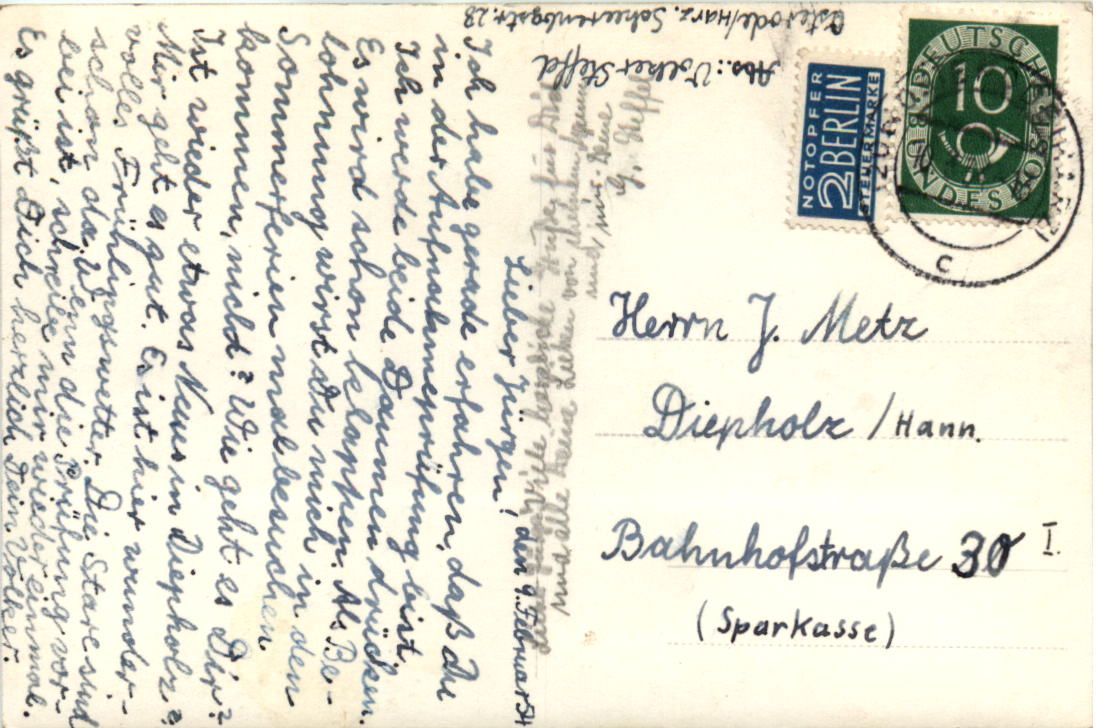 Osterode/Harz. Scheerenbgstr. 23
Abs.: Volker Steffel
Lieber Jürgen! den 9. Februar 54
Ich habe gerade erfahren, daß Du
in der Aufnahmeprüfung bist.
Ich werde beide Daumen drücken.
Es wird schon belappen. Als Be-
lohnung wirst Du mich in den
Sommerferien mal besuchen
kommen, nicht? Wie geht es Dir?
Ist wieder etwas Neues in Diepholz?
Mir geht es gut. Es ist hier wunder-
volles Frühligswetter. Die Stare sind
schon da. Wenn die Prüfung vor-
bei ist, schreibe mir wieder einmal.
Es grüßt Dich herzlich Dein Volker.
herzliche Grüße für Dich
und alle Deine Lieben von
und
G. Steffel
NOTOPFER
2 BERLIN
STEUERMARKE
DEUTSCHE
10
BUNDESPOST
c
Herrn J. Metz
Diepholz / Hann.
Bahnhofstraße 30 I.
(Sparkasse)